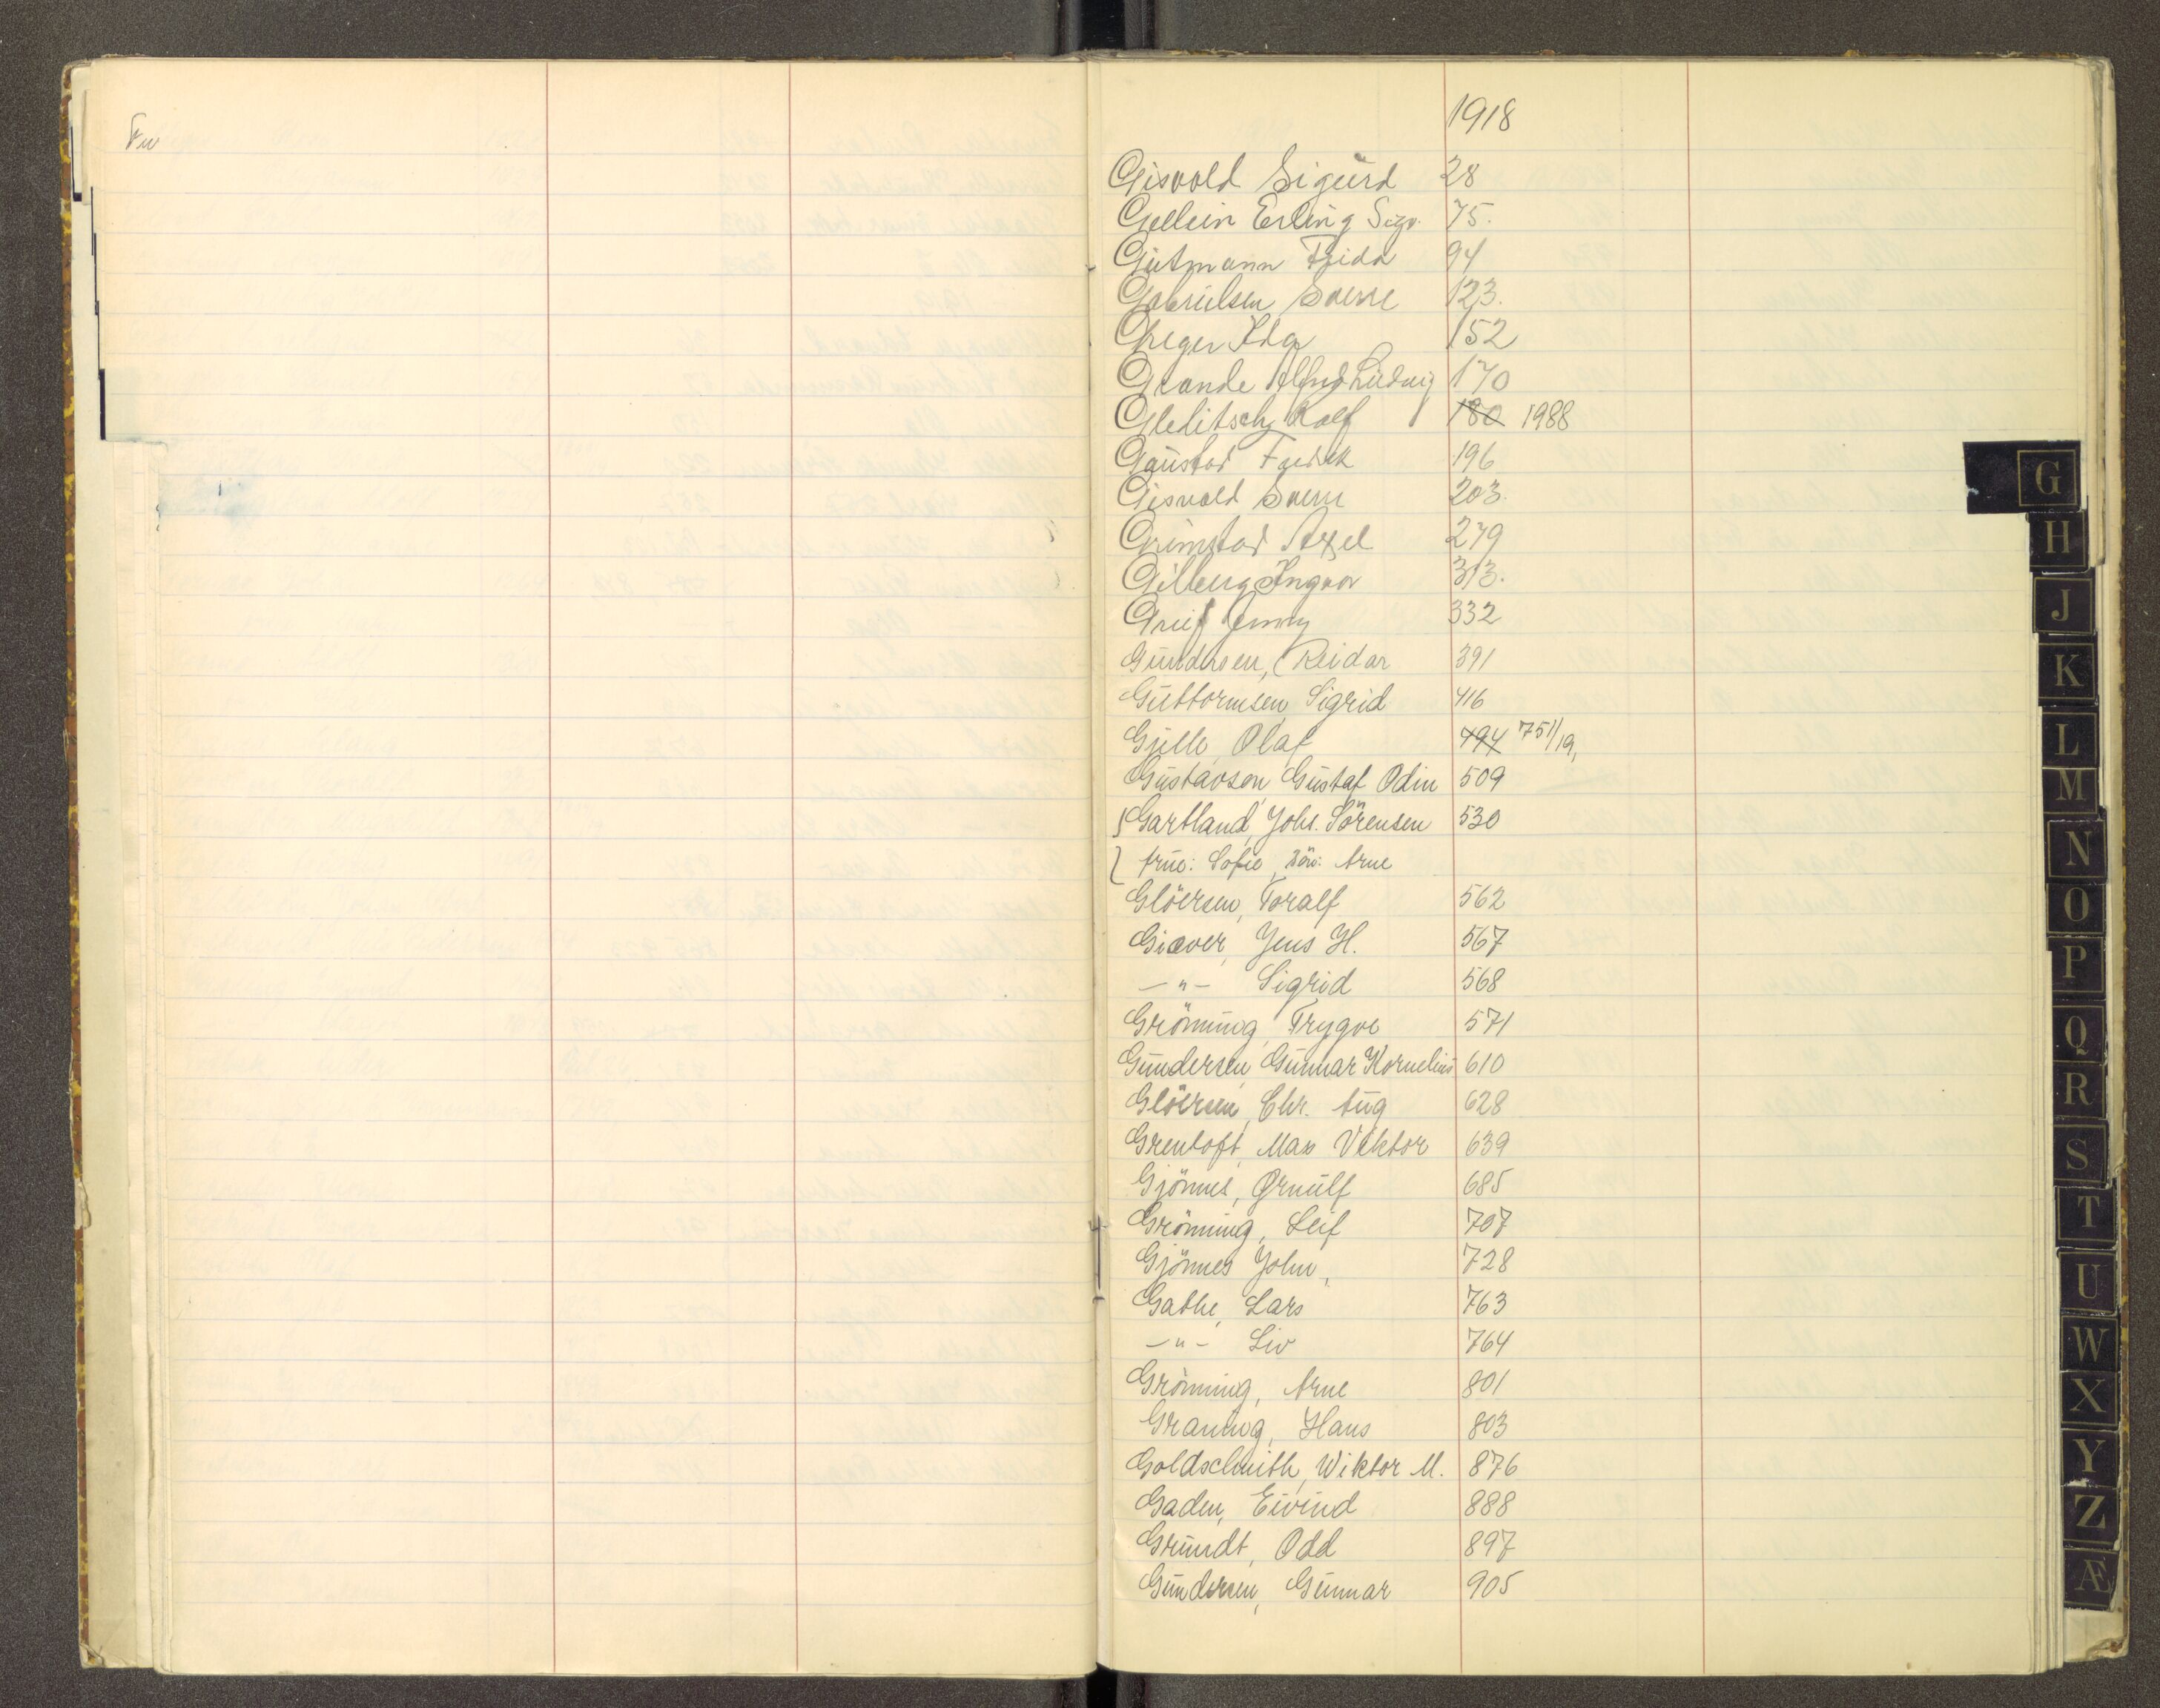 Fu
1918
Gisvold Sigurd 28
Gellein Erling Sigv. 75.
Gutmann Frida 94
Gabrielsen Sverre 123.
Greger Ida 152
Grande Alfred Ludvig 170
Gleditsch Rolf 180 1988
Gaustad Fredrik 196
Gisvold Sverre 203.
Grimstad Axel 279
Gilberg Ingvar 313.
Greif Jenny 332
Gundersen, Reidar 391
Guttormsen, Sigrid 416
Gjelle, Olaf 494 751/19,
Gustavson, Gustaf Odin 509
Gartland, Johs. Sörensen 530
frue: Sofie, sön: Arne
Glöersen, Toralf 562
Giæver, Jens H. 567
-"- Sigrid 568
Grönning, Trygve 571
Gundersen, Gunnar Kornelius 610
Glöersen, Chr. Aug 628
Grentoft, Max Viktor 639
Gjönnes, Ørnulf 685
Grönning, Leif 707
Gjönnes John, 728
Gathe, Lars 763
-"- Liv 764
Grönning, Arne 801
Graning, Hans 803
Goldschmith, Wiktor M. 876
Gaden, Eivind 888
Grundt, Odd 897
Gundersen, Gunnar 905
G
H
J
K
L
M
N
O
P
Q
R
S
T
U
W
X
Y
Z
Æ